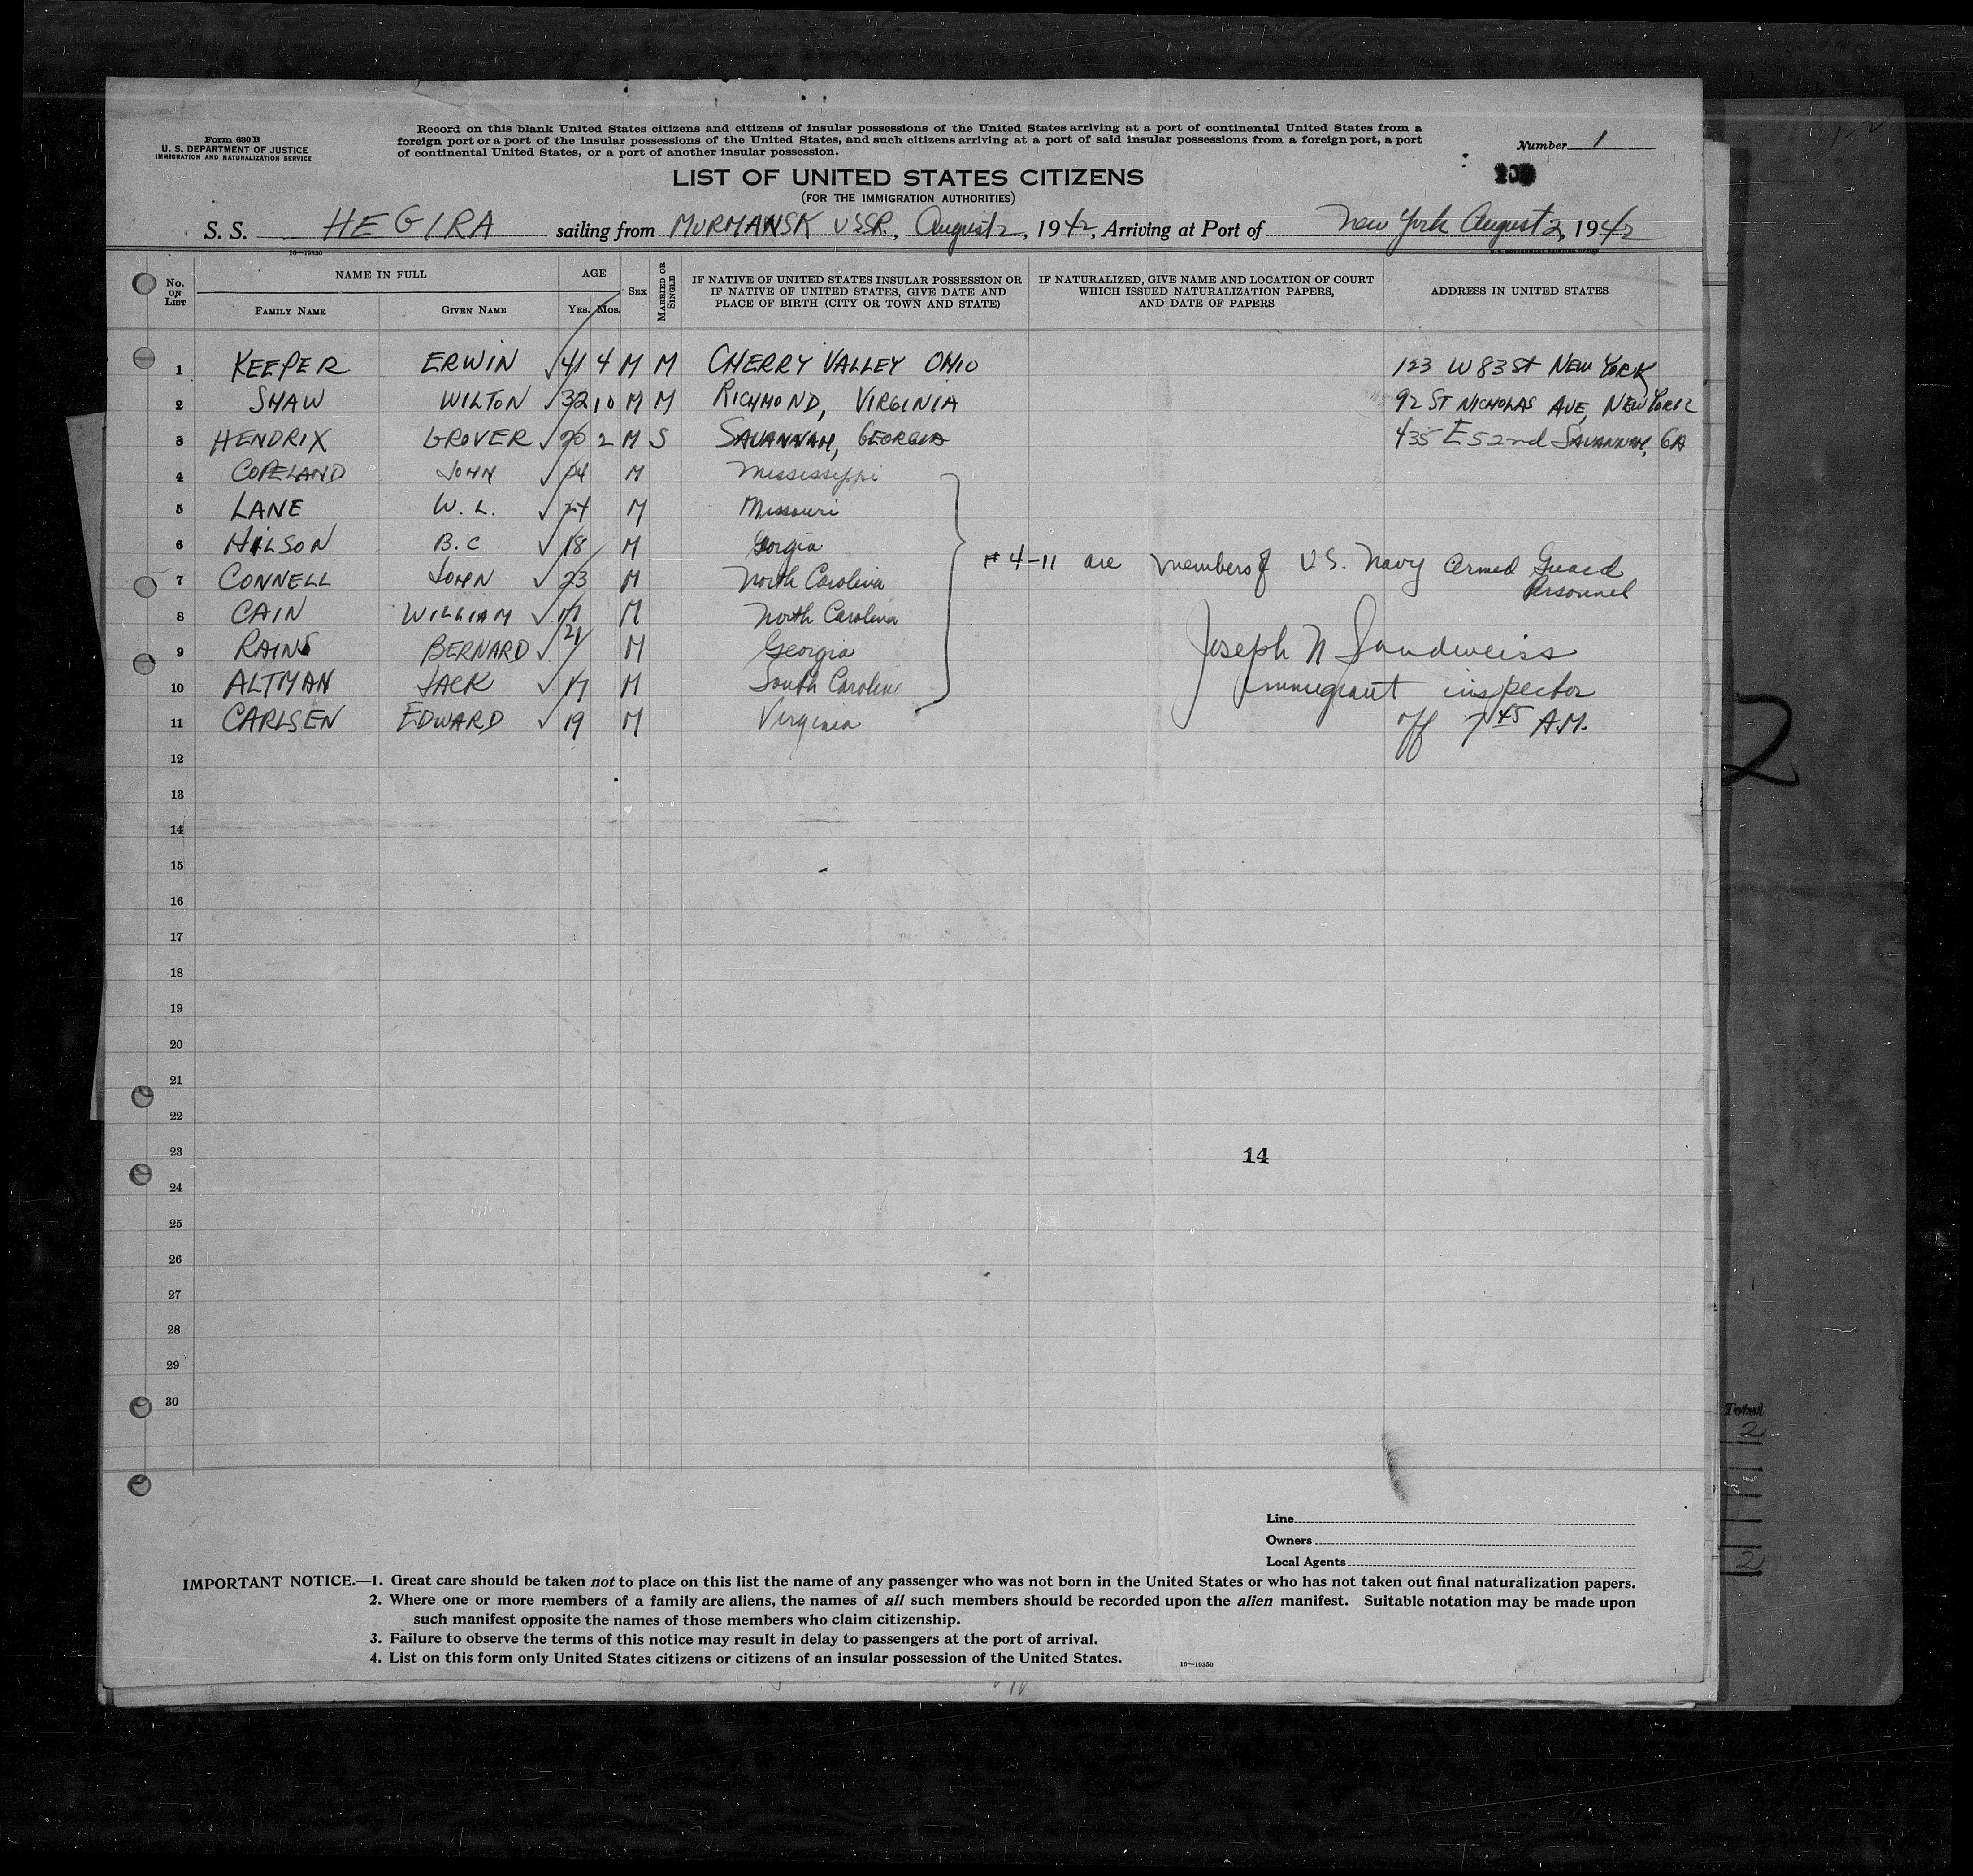 Form 630 B
U. S. DEPARTMENT OF JUSTICE
IMMIGRATION AND NATURALIZATION SERVICE
Record on this blank United States citizens and citizens of insular possessions of the United States arriving at a port of continental United States from a
foreign port or a port of the insular possessions of the United States, and such citizens arriving at a port of said insular possessions from a foreign port, a port
of continental United States, or a port of another insular possession.
Number 1
LIST OF UNITED STATES CITIZENS
(FOR THE IMMIGRATION AUTHORITIES)
S. S. HEGIRA sailing from MURMANSK USSR., August 2, 1942, Arriving at Port of New York August 2, 1942
16—19350
U.S. GOVERNMENT PRINTING OFFICE
No. ON LIST
NAME IN FULL
FAMILY NAME
GIVEN NAME
AGE
YRS. MOS.
SEX
MARRIED OR SINGLE
IF NATIVE OF UNITED STATES INSULAR POSSESSION OR
IF NATIVE OF UNITED STATES, GIVE DATE AND
PLACE OF BIRTH (CITY OR TOWN AND STATE)
IF NATURALIZED, GIVE NAME AND LOCATION OF COURT
WHICH ISSUED NATURALIZATION PAPERS,
AND DATE OF PAPERS
ADDRESS IN UNITED STATES
1 KEEPER ERWIN √ 41 4 M M CHERRY VALLEY OHIO 123 W 83 St NEW YORK
2 SHAW WILTON √ 32 10 M M RICHMOND, VIRGINIA 92 ST NICHOLAS AVE, NEW YORK
3 HENDRIX GROVER √ 20 2 M S SAVANNAH, GEORGIA 435 E 52nd SAVANNAH, GA
4 COPELAND JOHN √ 24 M Mississippi
5 LANE W. L. √ 24 M Missouri
6 HILSON B.C √ 18 M Georgia
7 CONNELL JOHN √ 23 M North Carolina
8 CAIN WILLIAM √ 17 M North Carolina
9 RAINS BERNARD √ 21 M Georgia
10 ALTMAN JACK √ 17 M South Carolina
11 CARLSEN EDWARD √ 19 M Virginia
# 4-11 are members of U.S. Navy Armed Guard
Personnel
Joseph N Sandweiss
Immigrant inspector
off 7 45 A.M.
12
13
14
15
16
17
18
19
20
21
22
23
14
24
25
26
27
28
29
30
2
Total
2
2
Line
Owners
Local Agents
IMPORTANT NOTICE.—1. Great care should be taken not to place on this list the name of any passenger who was not born in the United States or who has not taken out final naturalization papers.
2. Where one or more members of a family are aliens, the names of all such members should be recorded upon the alien manifest. Suitable notation may be made upon
such manifest opposite the names of those members who claim citizenship.
3. Failure to observe the terms of this notice may result in delay to passengers at the port of arrival.
4. List on this form only United States citizens or citizens of an insular possession of the United States.
16—19350